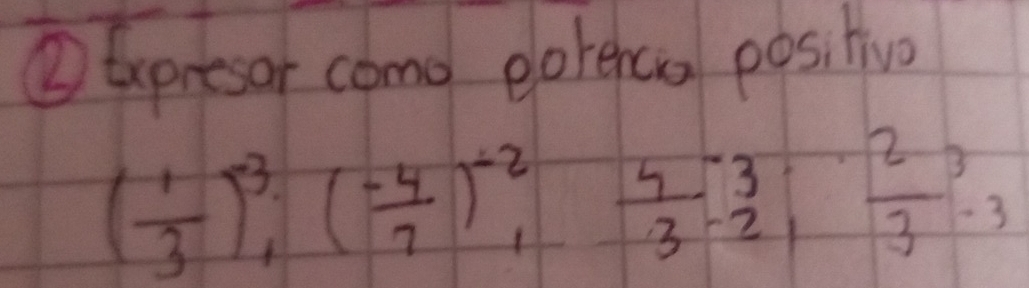 ② Expresar como potencia positiva
(1/3)^-3, (-4/7)^-2, 4^-3/3^-2, 2^3/3^-3